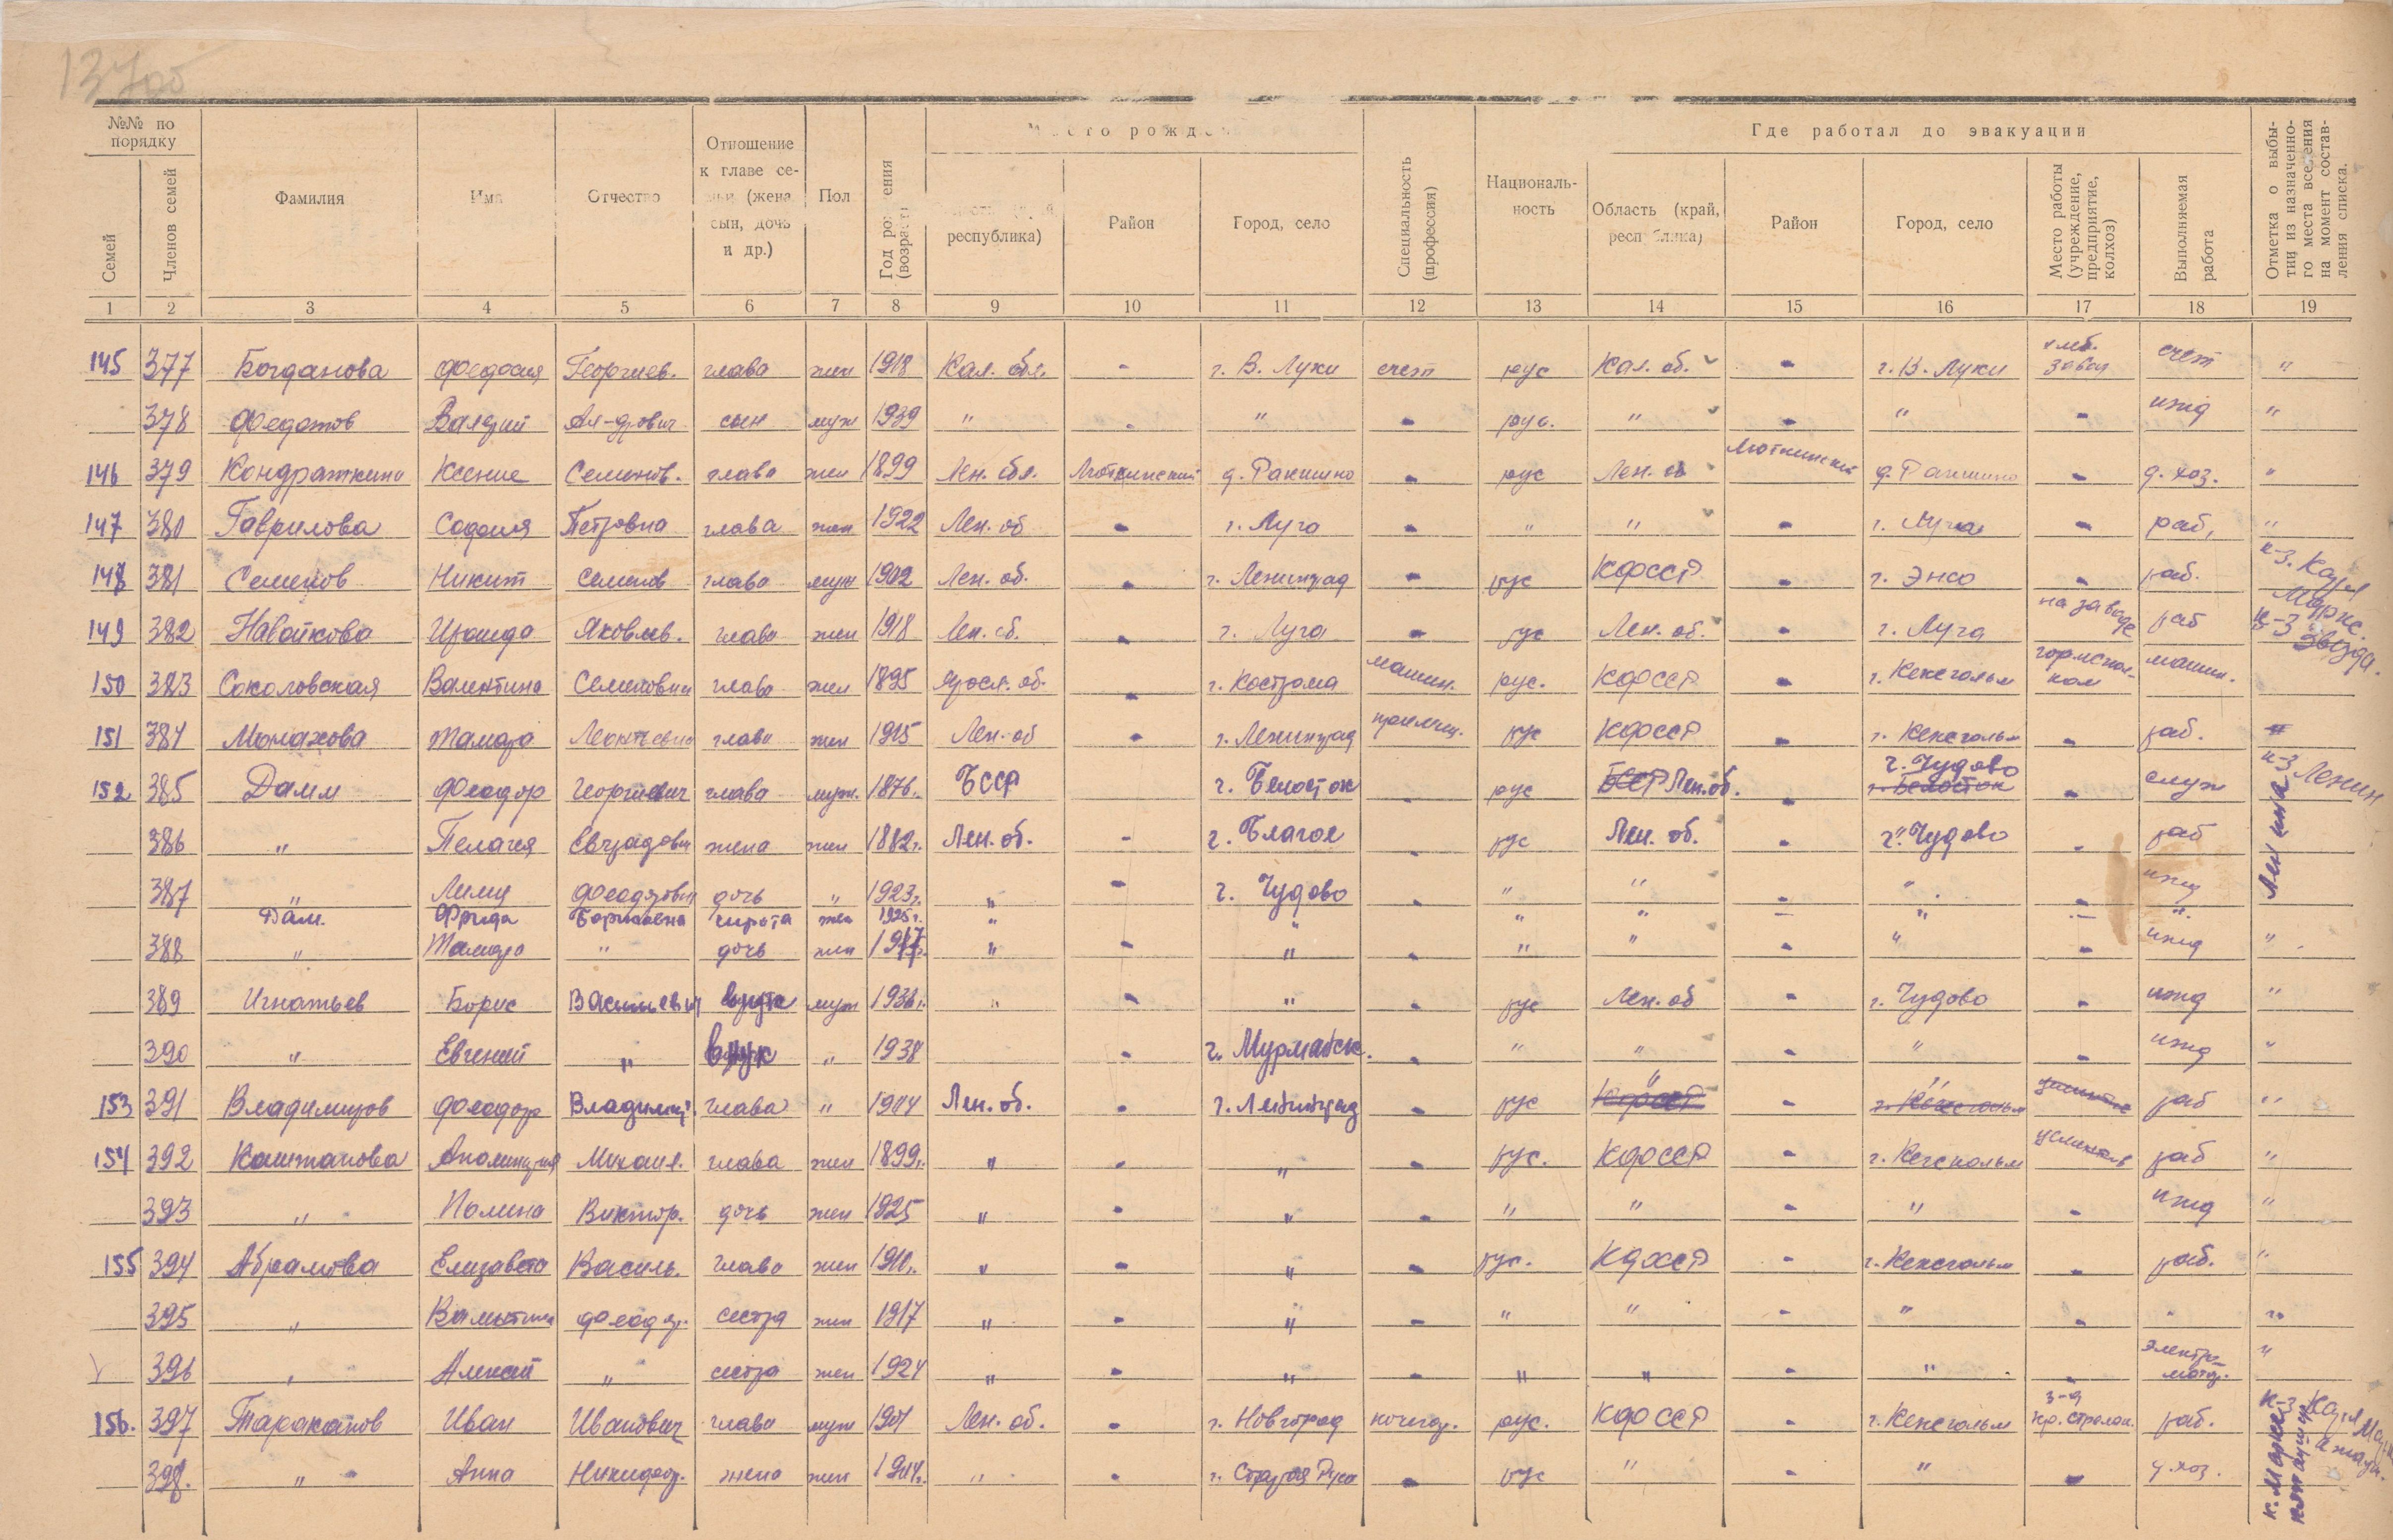 137об
№№ по порядку Место рожден Где работал до эвакуации
Семей Членов семей Фамилия Имя Отчество Отношение к главе семьи (жена, сын, дочь и др.) Пол Год рождения (возраст) республика) Район Город, село Специальность (профессия) Националь-ность Область (край, республика) Район Город, село Место работы (учреждение, предприятие, колхоз) Выполняемая работа Отметка о выбы-тии из назначенно-го места вселения на момент состав-ления списка.
1 2 3 4 5 6 7 8 9 10 11 12 13 14 15 16 17 18 19
145 377 Богданова Федосия Георгиев. глава жен 1918 Кал. обл. - г. В. Луки счет рус Кал. об. - г. В. Луки хлеб. завод счет "
378 Федотов Валерий Ал-дрович сын муж 1939 " - " - рус. " - " - ижд "
146 379 Ксение Семенов. глава жен 1899 Лен. обл. д. Ракшино - рус Лен. об - д. Ракшино - д. хоз. "
147 380 Гаврилова София Петровна глава жен 1922 Лен. об - г. Луга - " " - г. Луга - раб. "
148 381 Семенов Никит Семенов глава муж 1902 Лен. об. - г. Ленинград - рус КФССР - г. Энсо - раб. к-з. Карл Маркс.
149 382 Ираида Яковлев. глава жен 1918 Лен. об. - г. Луга - рус Лен. об. - г. Луга на заводе раб к-з Звезда.
150 383 Соколовская Валентина Семеновна глава жен 1895 Яросл. об. - г. Кострома машин. рус. КФССР - г. Кексгольм машин.
151 384 Монахова Тамара Леонтьевна глава жен 1915 Лен. об - г. Ленинград рус КФССР - г. Кексгольм - раб. "
152 385 Дамм Феодор Георгиевич глава муж. 1876г. БССР г. Белосток - рус БССР Лен. об. - г. Чудово г. Белосток - служ к-з Ленин Ленина
386 " Пелагея жена жен 1882г. Лен. об. - г. Благое - рус Лен. об. - г. Чудово - раб
387 " Феодоровн дочь " 1923г. " - г. Чудово - " " - " - ижд
Дам. Фрида Борисовна сирота жен 1925г. " " " " - " - "
388 " Тамара " дочь жен 1917г. " - " - " " - " - ижд "
389 Игнатьев Борис Васильевич муж 1936г. " - " - рус Лен. об - г. Чудово - ижд "
390 " Евгений " внук " 1938 - г. Мурманск. - " " - " - ижд "
153 391 Владимиров Феодор Владимир. глава " 1904 Лен. об. - г. Ленинград - рус " КФССР - " г. Кексгольм раб "
154 392 Каштанова Михаил. глава жен 1899г. " - " - рус. КФССР - г. Кексгольм раб "
393 " Полина Виктор. дочь жен 1925 " - " - " " - " - ижд "
155 394 Абрамова Елизавета Василь. глава жен 1910г. " - " - рус. КФССР - г. Кексгольм - раб. "
395 " Валентина Феодор. сестра жен 1917 " - " - " " - " - " "
396 " Алексей " сестра жен 1924 " - " - " " - " - электро-мотор. "
156. 397 Тараканов Иван Иванович глава муж 1901 Лен. об. - г. Новгород кочегар. рус. КФССР - г. Кексгольм з-д раб. к-з Карл Маркс
398. " Анна Никифор. жена жен 1904г. " - г. Старая Руса - рус " - " - д. хоз.